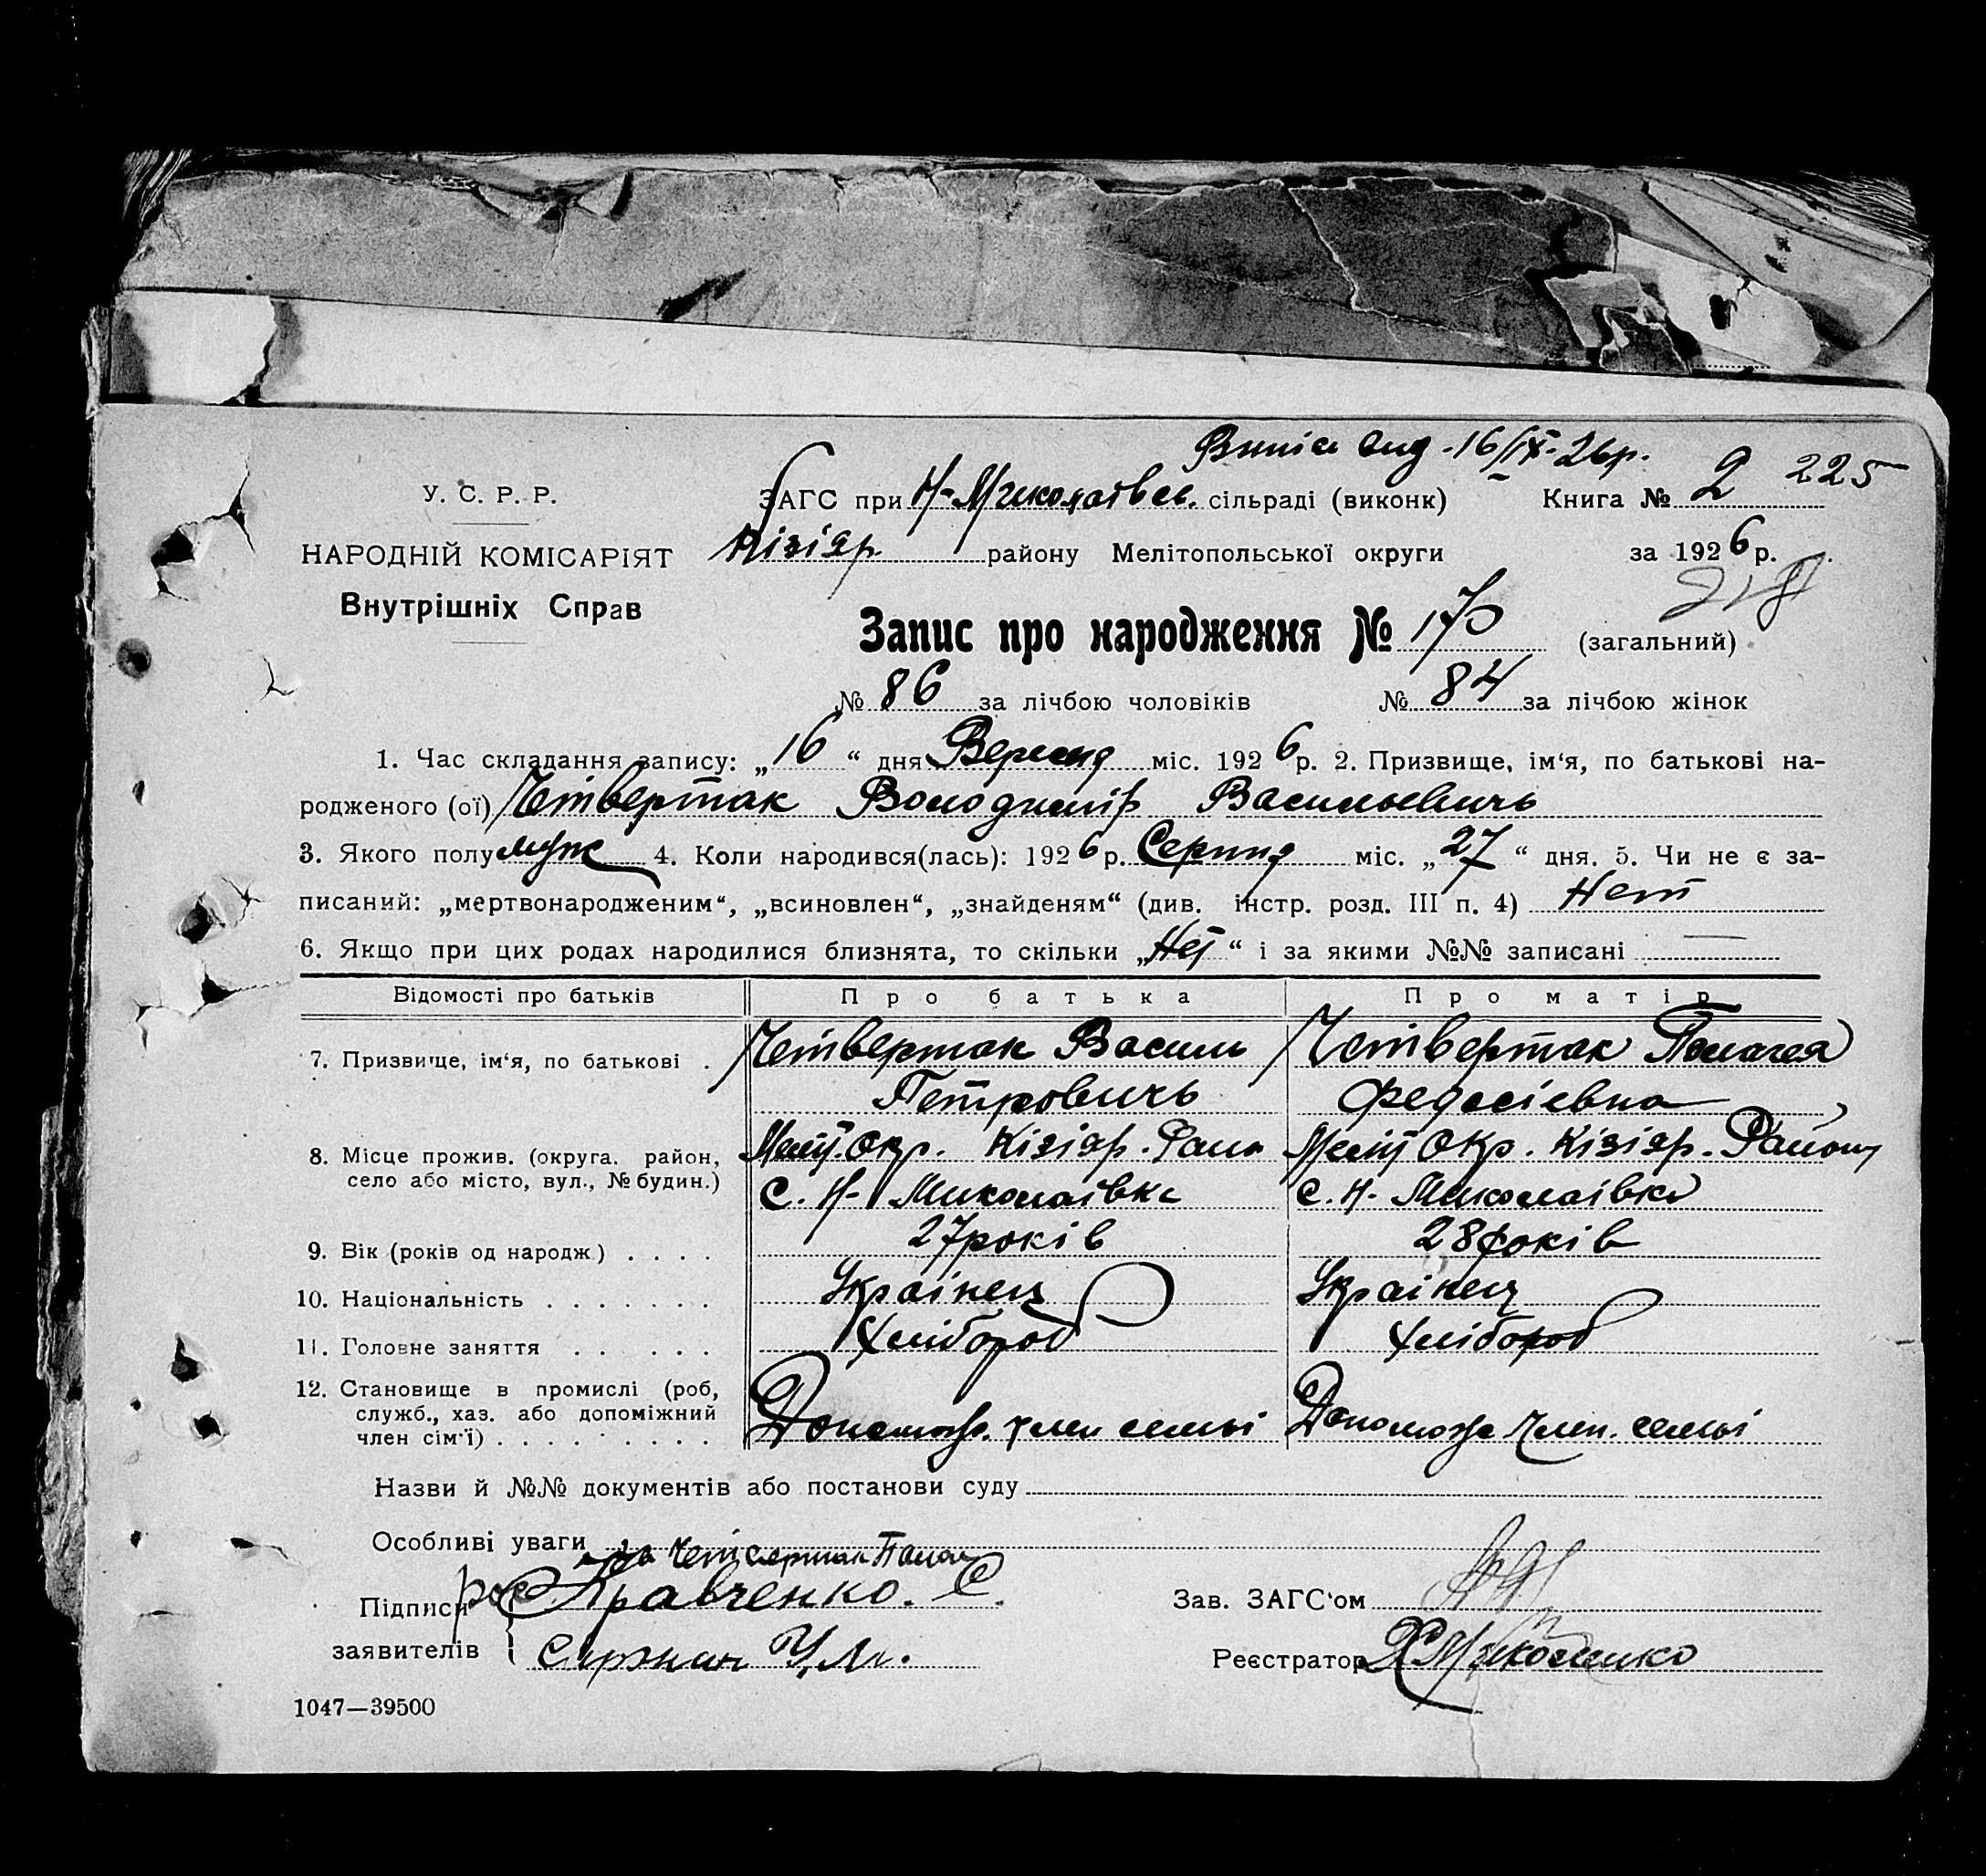 Випис вид. 16/IX-26р.
У. С. Р. Р.
ЗАГС при Н-Миколаевск. сільраді (виконк) Книга № 2 225
НАРОДНІЙ КОМІСАРІЯТ
Кізіяр. району Мелітопольської округи за 1926 р.
Внутрішніх Справ
Запис про народження № 170 (загальний)
№ 86 за лічбою чоловіків № 84 за лічбою жінок
1. Час складання запису: „16“ дня Вересня міс. 1926 р. 2. Призвище, ім‘я, по батькові на-
родженого (ої) Четвертак Володимір Васильевичь
3. Якого полу муж 4. Коли народився(лась): 1926 р. Серпня міс. „27“ дня. 5. Чи не є за-
писаний: „мертвонародженим“, „всиновлен“, „знайденям“ (див. інстр. розд. III п. 4) Нет
6. Якщо при цих родах народилися близнята, то скільки „Нет“ і за якими №№ записані —
Відомості про батьків Про батька Про матір
7. Призвище, ім‘я, по батькові . Четвертак Василь Четвертак Пелагея
Петровичь Федосієвна
8. Місце прожив. (округа. район, Меліт. Окр. Кізіяр. Район Меліт Окр. Кізіяр. Району
село або місто, вул., № будин.) С. Н- Миколаівка с. Н- Миколаівка
9. Вік (років од народж) . . . . 27 років 28 років
10. Національність . . . . . . . Украінец Украінец
11. Головне заняття . . . . . Хлібороб Хлібороб
12. Становище в промислі (роб,
служб., хаз. або допоміжний
член сім‘ї) . . . . . . . . . Допомож. член семьі Допомож член. семьі
Назви й №№ документів або постанови суду
Особливі уваги
Четвертак Пелаг
Підписи Кравченко. С. Зав. ЗАГС‘ом
заявителів Реєстратор Миколенко
1047—39500